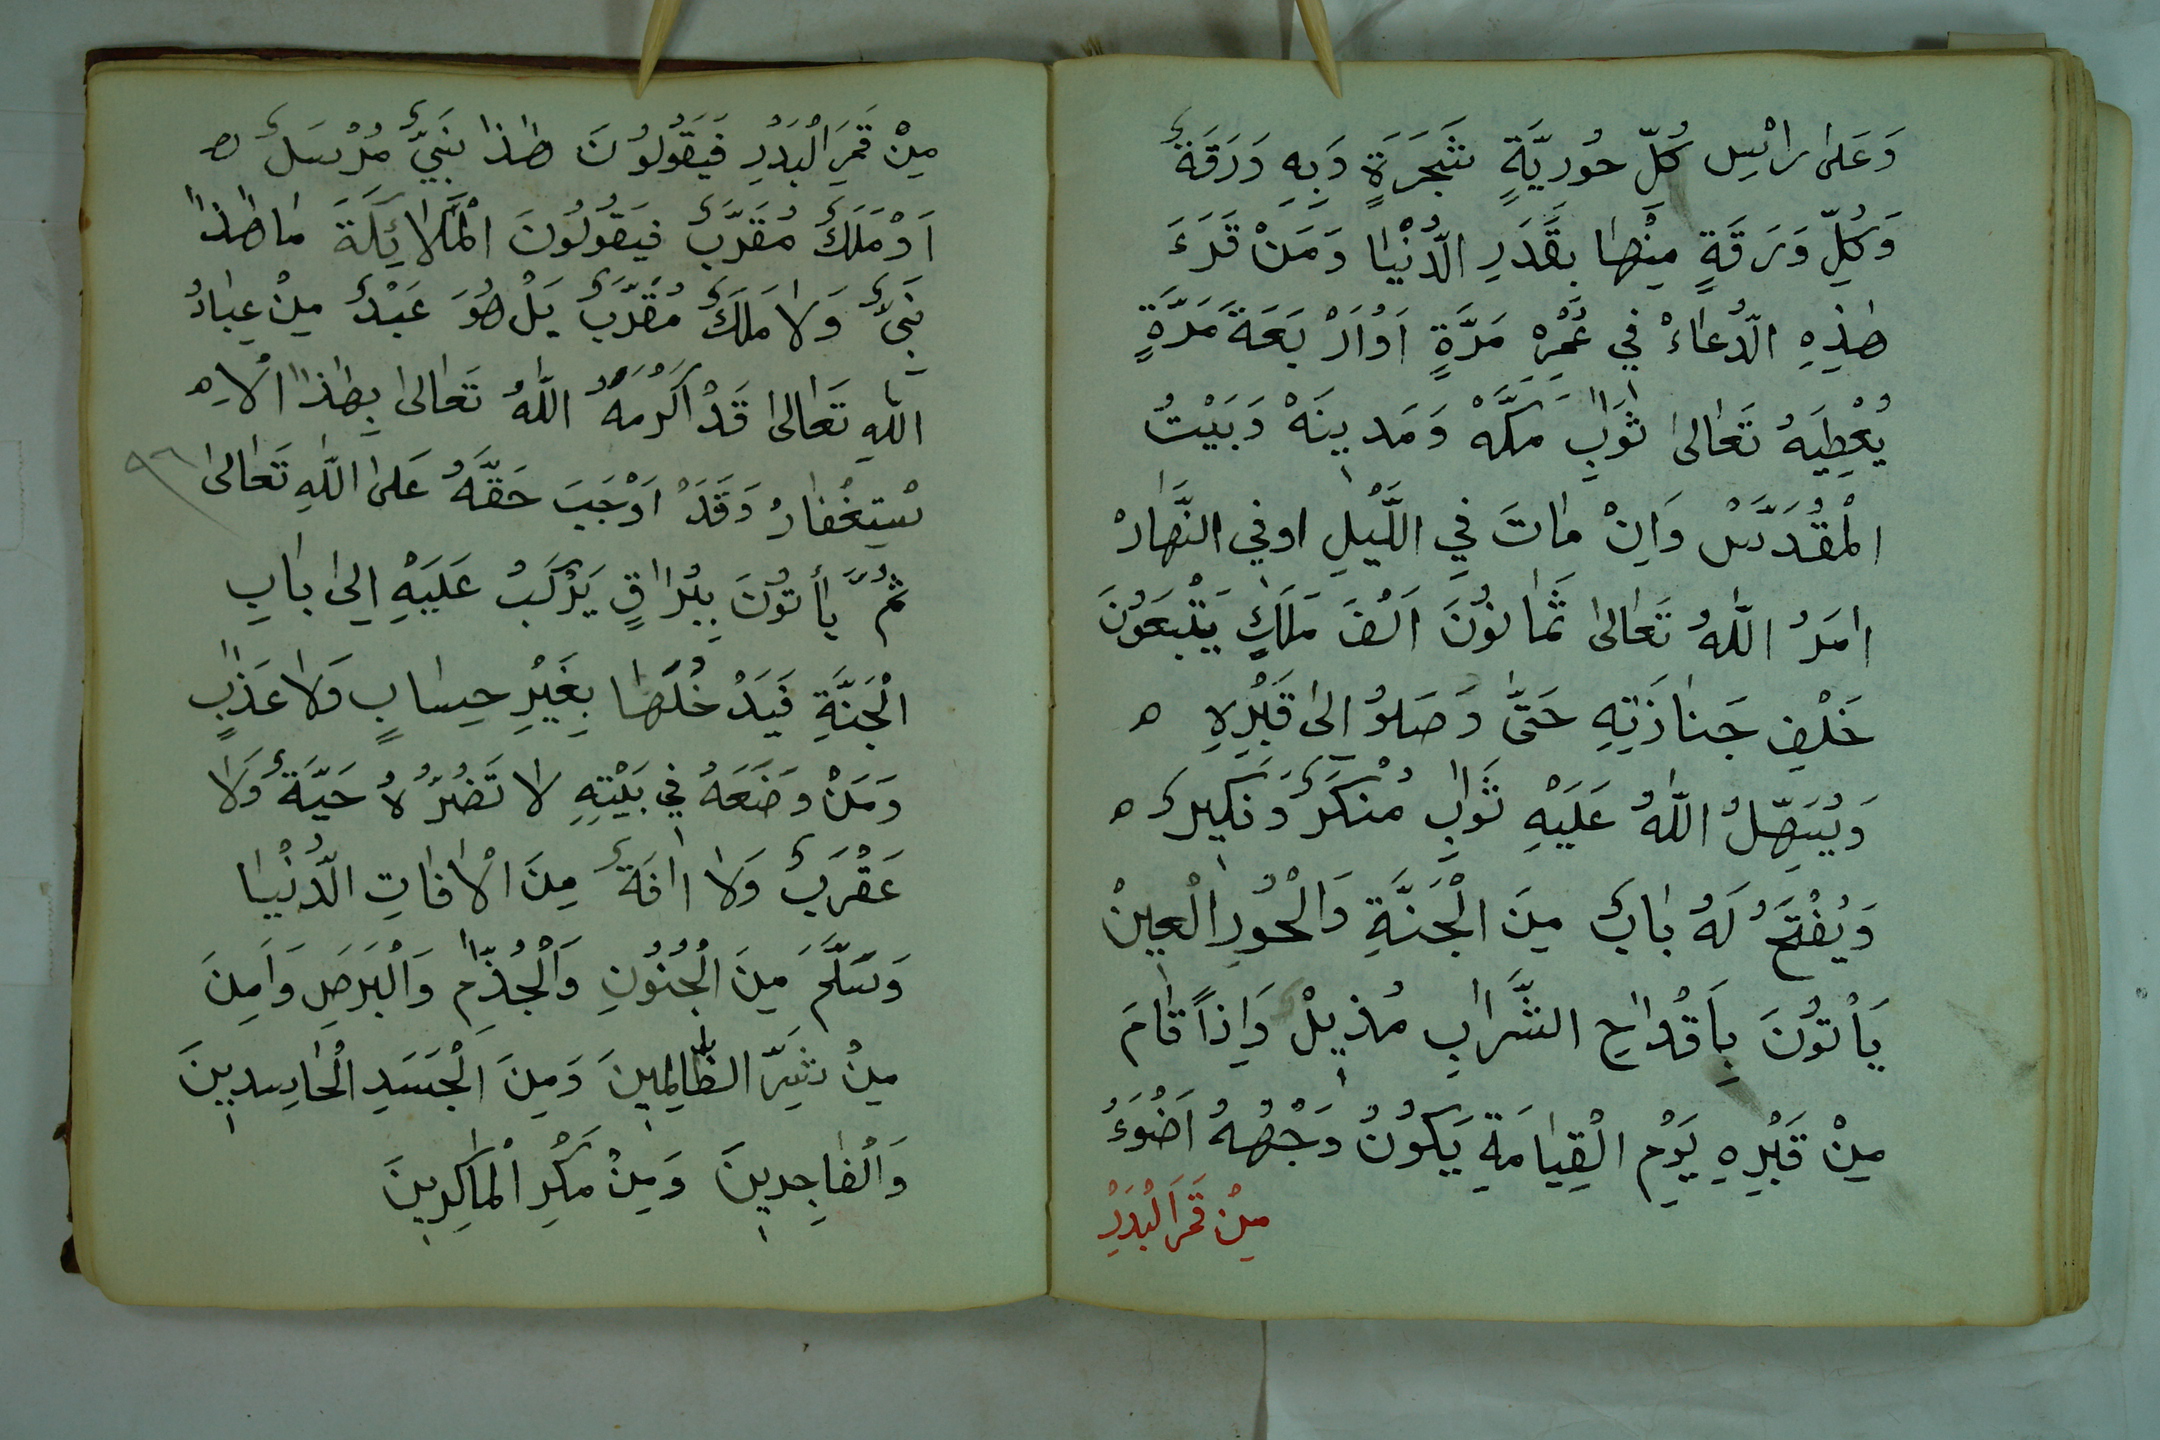 وَعَلىٰ رائسِ كُلِّ حُورِيَّةٍ شَجَرَةٍ وَبِهِ وَرَقَةٌ
وَكُلِّ وَرَقَةٍ مِنْهٰا بِقَدَرِ الدُّنْيٰا وَمَنْ قَرَءَ
هٰذِهِ الدُّعٰاءْ في عُمْرِهْ مَرَّةٍ اَوْاَرْ بَعَةَ مَرَّةٍ
يُعْطِيَهُ تَعٰالىٰ ثَوٰابِ مَكَّهْ وَمَدينَهْ وَبَيْتُ
الْمُقَدَّسْ وَاِنْ مٰاتَ فِي اللَّيْلِ اوفي النَّهٰارْ
امَرُ اللّٰهُ تَعٰالىٰ ثَمٰانُونَ اَلْفَ مَلَكٍ يَتْبَعُونَ
خَلْفِ جَنازَتِهِ حَتّٰى وَصَلوُ اِلىٰ قَبْرِهِ ه
وَيُسَهِّلُ اللّٰهُ عَلَيْهِ ثَوٰابِ مُنْكَرٌ وَنَكيرٌ ه
وَيُفْتَحُ لَهُ بٰابٌ مِنَ الْجَنَّةِ وَالْحُورِالْعينْ
يَاْتُونَ بِاَقْدٰاحِ الشَّرٰابِ مُذيلْ وَاِذاً قٰامَ
مِنْ قَبْرِهِ يَوْمِ الْقِيٰامَةِ يَكُونُ وَجْهُهُ اَضْوَءُ
مِنْ قَمَرَالْبَدْرِ
مِنْ قَمَرِالْبَدْرِ فَيَقُولُونَ هٰذا نَبِيٌّ مُرْسَلٌ ه
اَوْمَلَكٌ مُقَرَّبٌ فيَقُولُونَ الْمَلائِكَةَ مٰا هٰذا
نَبِيٌّ وَلا مَلَكٌ مُقَرَّبٌ بَلْ هُوَ عَبْدٌ مِنْ عِبٰادُ
اللّٰهِ تَعٰالىٰ قَدْ اَكْرَمَهُ اللّٰهُ تَعٰالىٰ بِهٰذا الْاِه
سْتِغْفٰارْ وَقَدْ اَوْجَبَ حَقَّهُ عَلىٰ اللّٰهِ تَعٰالىٰ
ثُمَّ يأتُونَ بِبُرٰاقٍ يَرْكَبُ عَلَيْهِ اِلىٰ بٰابِ
الْجَنَّةِ فَيَدْ خُلُهٰا بِغَيْرِ حِسٰابٍ وَلا عَذٰابٍ
وَمَنْ وَضَعَهُ في بَيْتِهِ لا تَضُرُّ هُ حَيَّةٌ وَلا
عَقْرَبٌ وَلا اٰفَةٌ مِنَ الْاٰفٰاتِ الدُّنْيٰا
وَسَلَّمَ مِنَ الْجُنُونِ وَالْجُذٰامِ وَالْبَرَصِ وَاَمِنَ
مِنْ شَرِّ الظّٰالِمينَ وَمِنَ الْحَسَدِ الْحٰاسِدينَ
وَالْفٰاجِرينَ وَمِنْ مَكْرِ الْمٰاكِرينَ